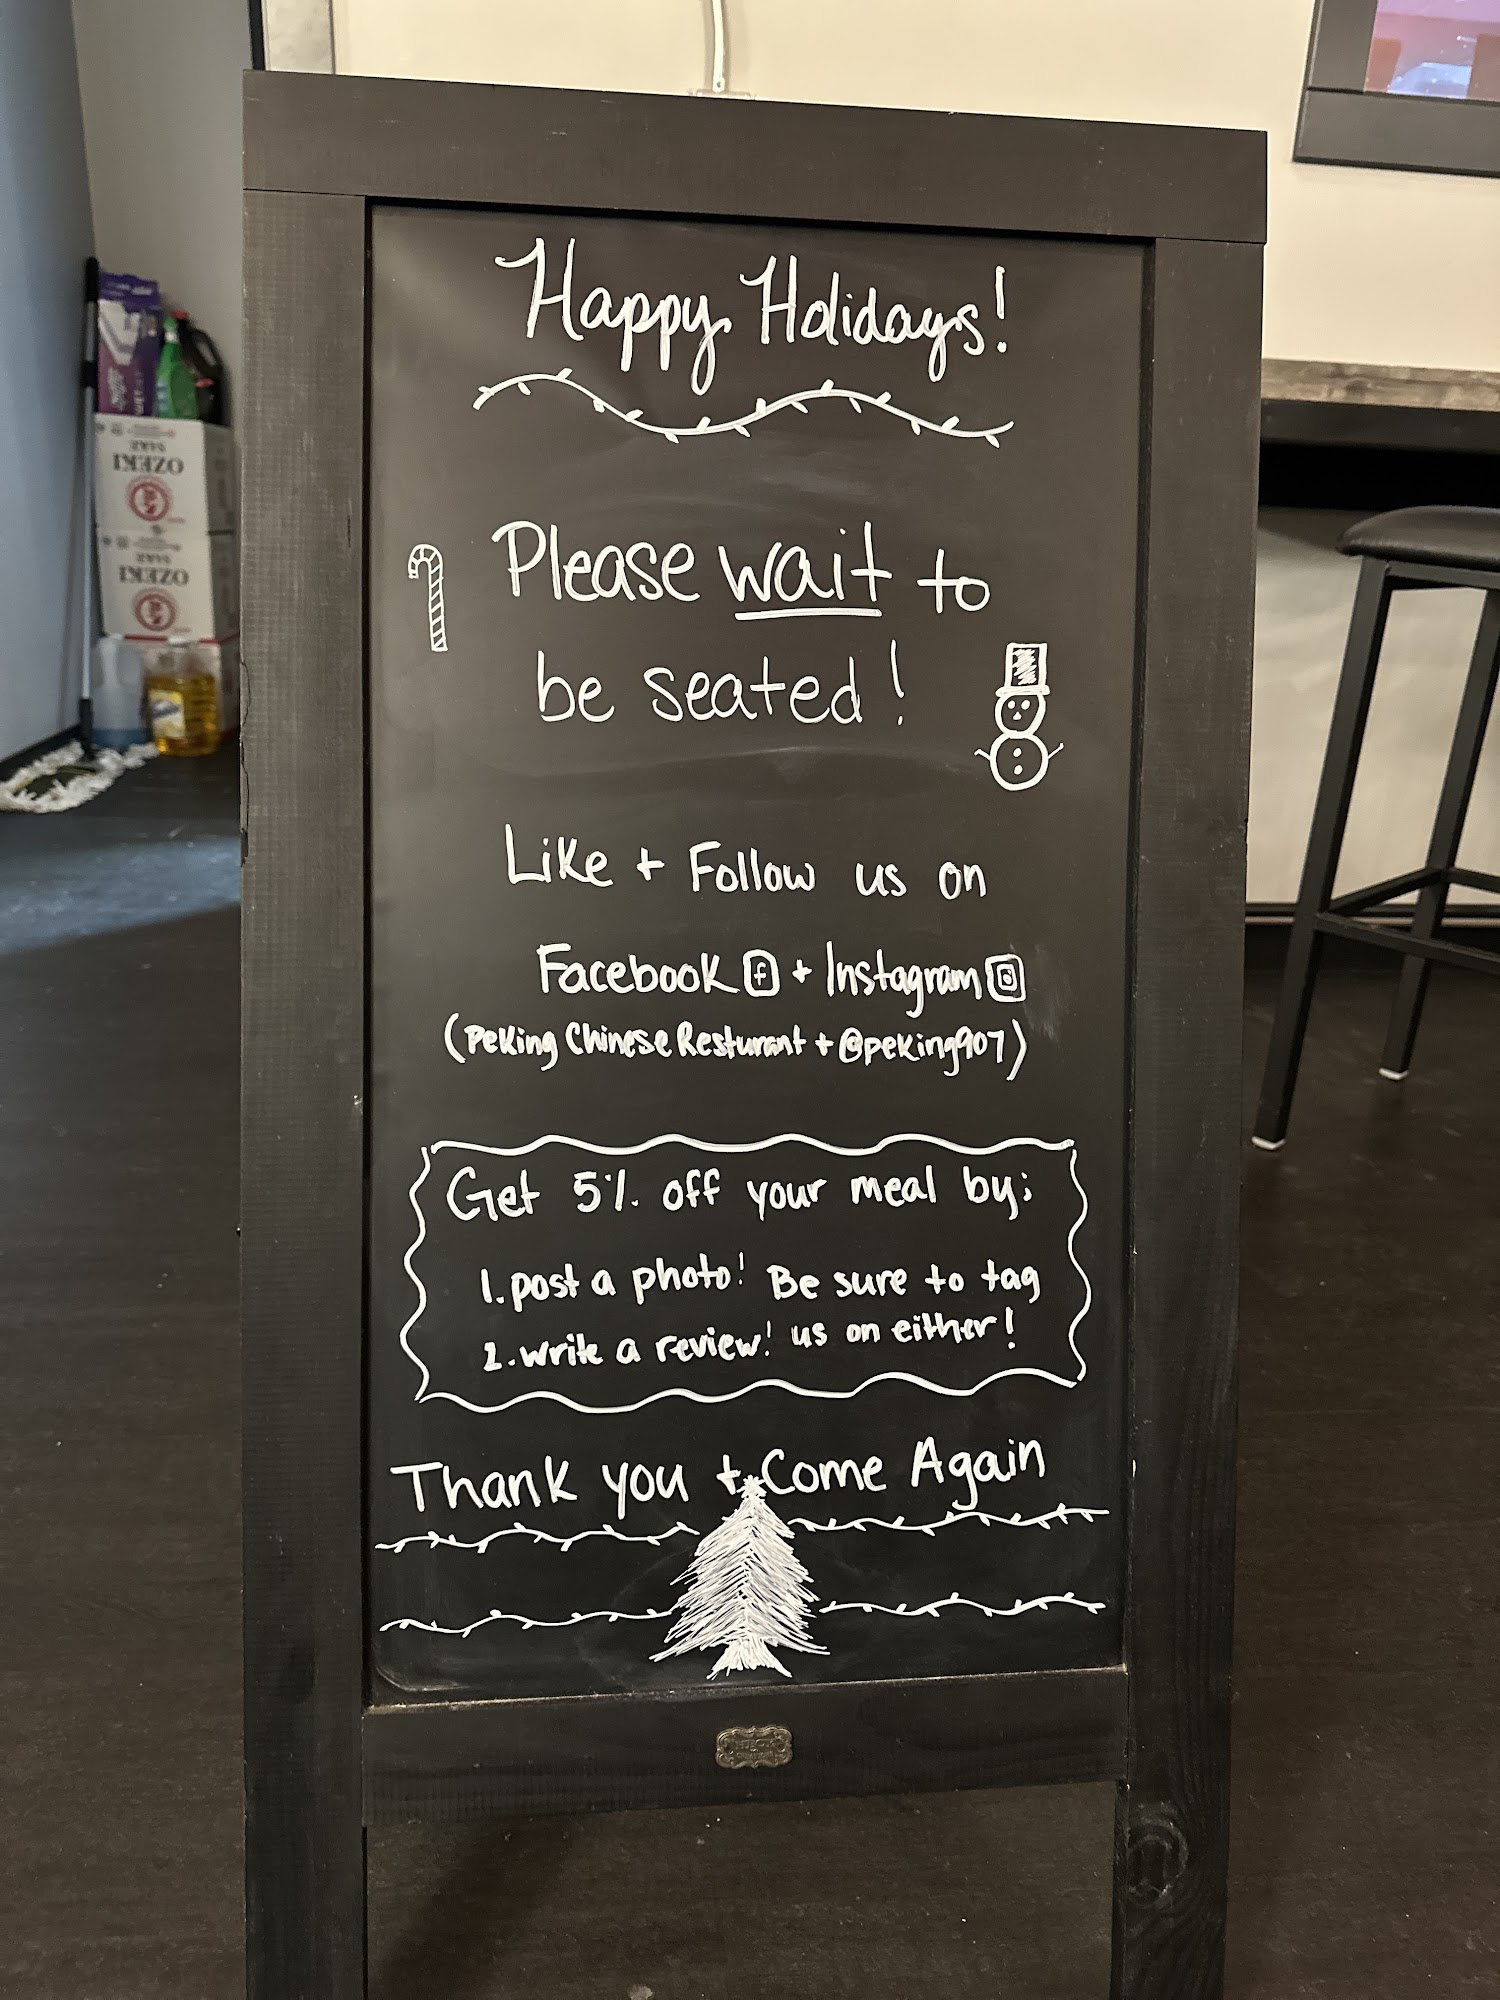 Happy Holidays!
Please wait to
be seated!
Like + Follow us on
Facebook f + Instagram
(Peking Chinese Resturant + @peking907)
Get 5% off your meal by:
1. post a photo! Be sure to tag
2. write a review! us on either!
Thank you + Come Again
OZEKI
SAKE
OZEKI
SAKE